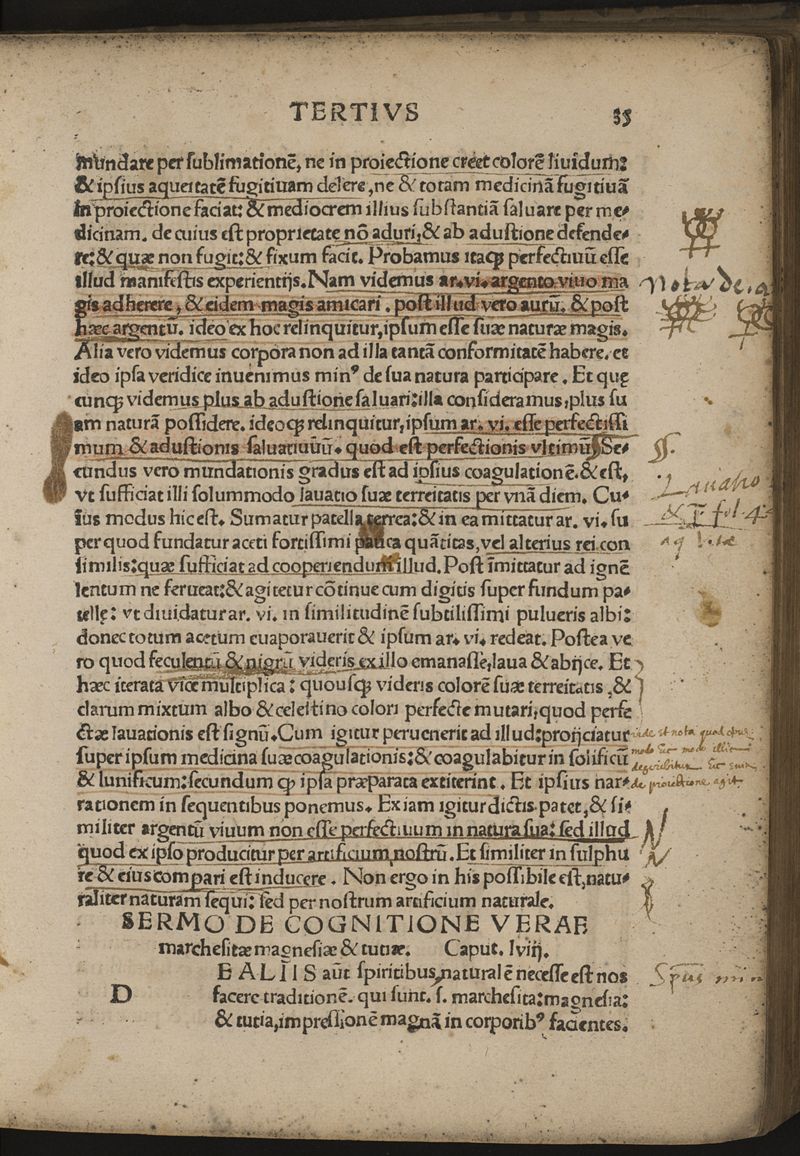 TERTIVS 35
mundare per sublimationē, ne in proiectione creet colorē liuidum:
& ipsius aqueitatē fugitiuam delere, ne & totam medicinā fugitiuā
in proiectione faciat: & mediocrem illius substantiā saluare per me⸗
dicinam. de cuius est proprietate nō aduri, & ab adustione defende⸗
re: & quæ non fugit: & fixum facit. Probamus itaqꝫ perfectiuū esse
illud manifestis experientijs. Nam videmus ar. vi. argento viuo ma
gis adherere, & eidem magis amicari. post illud vero aurū. & post
hæc argentū. ideo ex hoc relinquitur, ipsum esse suæ naturæ magis.
Alia vero videmus corpora non ad illa tantā conformitatē habere. et
ideo ipsa veridice inuenimus minꝰ de sua natura participare. Et quę
cunqꝫ videmus plus ab adustione saluari: illa consideramus, plus su
am naturā possidere. ideoqꝫ relinquitur, ipsum ar. vi. esse perfectissi
mum & adustionis saluatiuūū. quod est perfectionis vltimū. Se⸗
cundus vero mundationis gradus est ad ipsius coagulationē. & est,
vt sufficiat illi solummodo lauatio suæ terreitatis per vnā diem. Cu⸗
ius modus hic est. Sumatur patella terrea: & in ea mittatur ar. vi. su
per quod fundatur aceti fortissimi pauca quātitas, vel alterius rei con
similis: quæ sufficiat ad cooperiendum illud. Post īmittatur ad ignē
lentum ne ferueat: & agitetur cōtinue cum digitis super fundum pa⸗
tellę: vt diuidatur ar. vi. in similitudinē subtilissimi pulueris albi:
donec totum acetum euaporauerit & ipsum ar. vi. redeat. Postea ve
ro quod feculentū & nigrū videris ex illo emanasse, laua & abijce. Et
hæc iterata vice multiplica: quousqꝫ videris colorē suæ terreitatis, &
clarum mixtum albo & celestino colori perfecte mutari, quod perfe
ctæ lauationis est signū. Cum igitur peruenerit ad illud: proijciatur
super ipsum medicina suæ coagulationis: & coagulabitur in solificū
& lunificum: secundum qꝫ ipsa præparata extiterint. Et ipsius nar⸗
rationem in sequentibus ponemus. Ex iam igitur dictis patet, & si⸗
militer argentū viuum non esse perfectiuum in natura sua: sed illud
quod ex ipso producitur per artificium nostrū. Et similiter in sulphu
re & eius compari est inducere. Non ergo in his possibile est, natu⸗
raliter naturam sequi: sed per nostrum artificium naturale.
SERMO DE COGNITIONE VERAE
marchesitæ magnesiæ & tutiæ. Caput. lviij.
D E ALIIS aūt spiritibus, naturalē necesse est nos
facere traditionē. qui sunt. s. marchesita: magnesia:
& tutia, impressionē magnā in corporibꝰ facientes.
Nota de
Lauatio